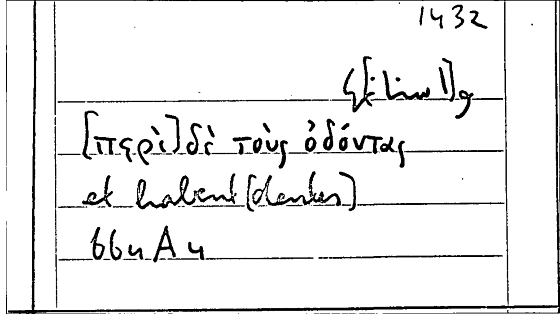 1432
[περὶ] δὲ τοὺς ὀδόντας
et habent (dentes)
664 A 4